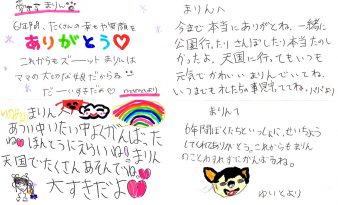 まりん
6年間、たくさんの幸せや笑顔を
ありがとう♡
これからもズーット まりんは
ママの大切な娘だからね
だーいすきだよ
mamaより
まりんへ
あつい中いたい中よくがんばった
ね。ほんとうにえらいね。まりん
天国でたくさんあそんでね。
大すきだよ
まりんへ
今まで本当にありがとね。一緒に
公園行ったりさんぽしたり本当たのし
かったよ。天国に行ってもいつも
元気でかわいいまりんでいてね。
いつまでもオレたちの事見守っててね。
まりんへ
6年間ぼくたちといっしょに、せいちょう
してくれてありがとう。これからもまりん
のことわすれずにがんばるね。
ゆいとより